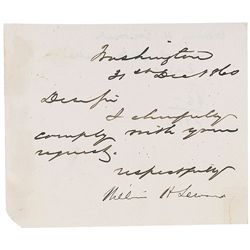 Washington
31st Dec 1860
Dear Sir
I cheerfully
comply with your
request.
respectfully
William H Seward